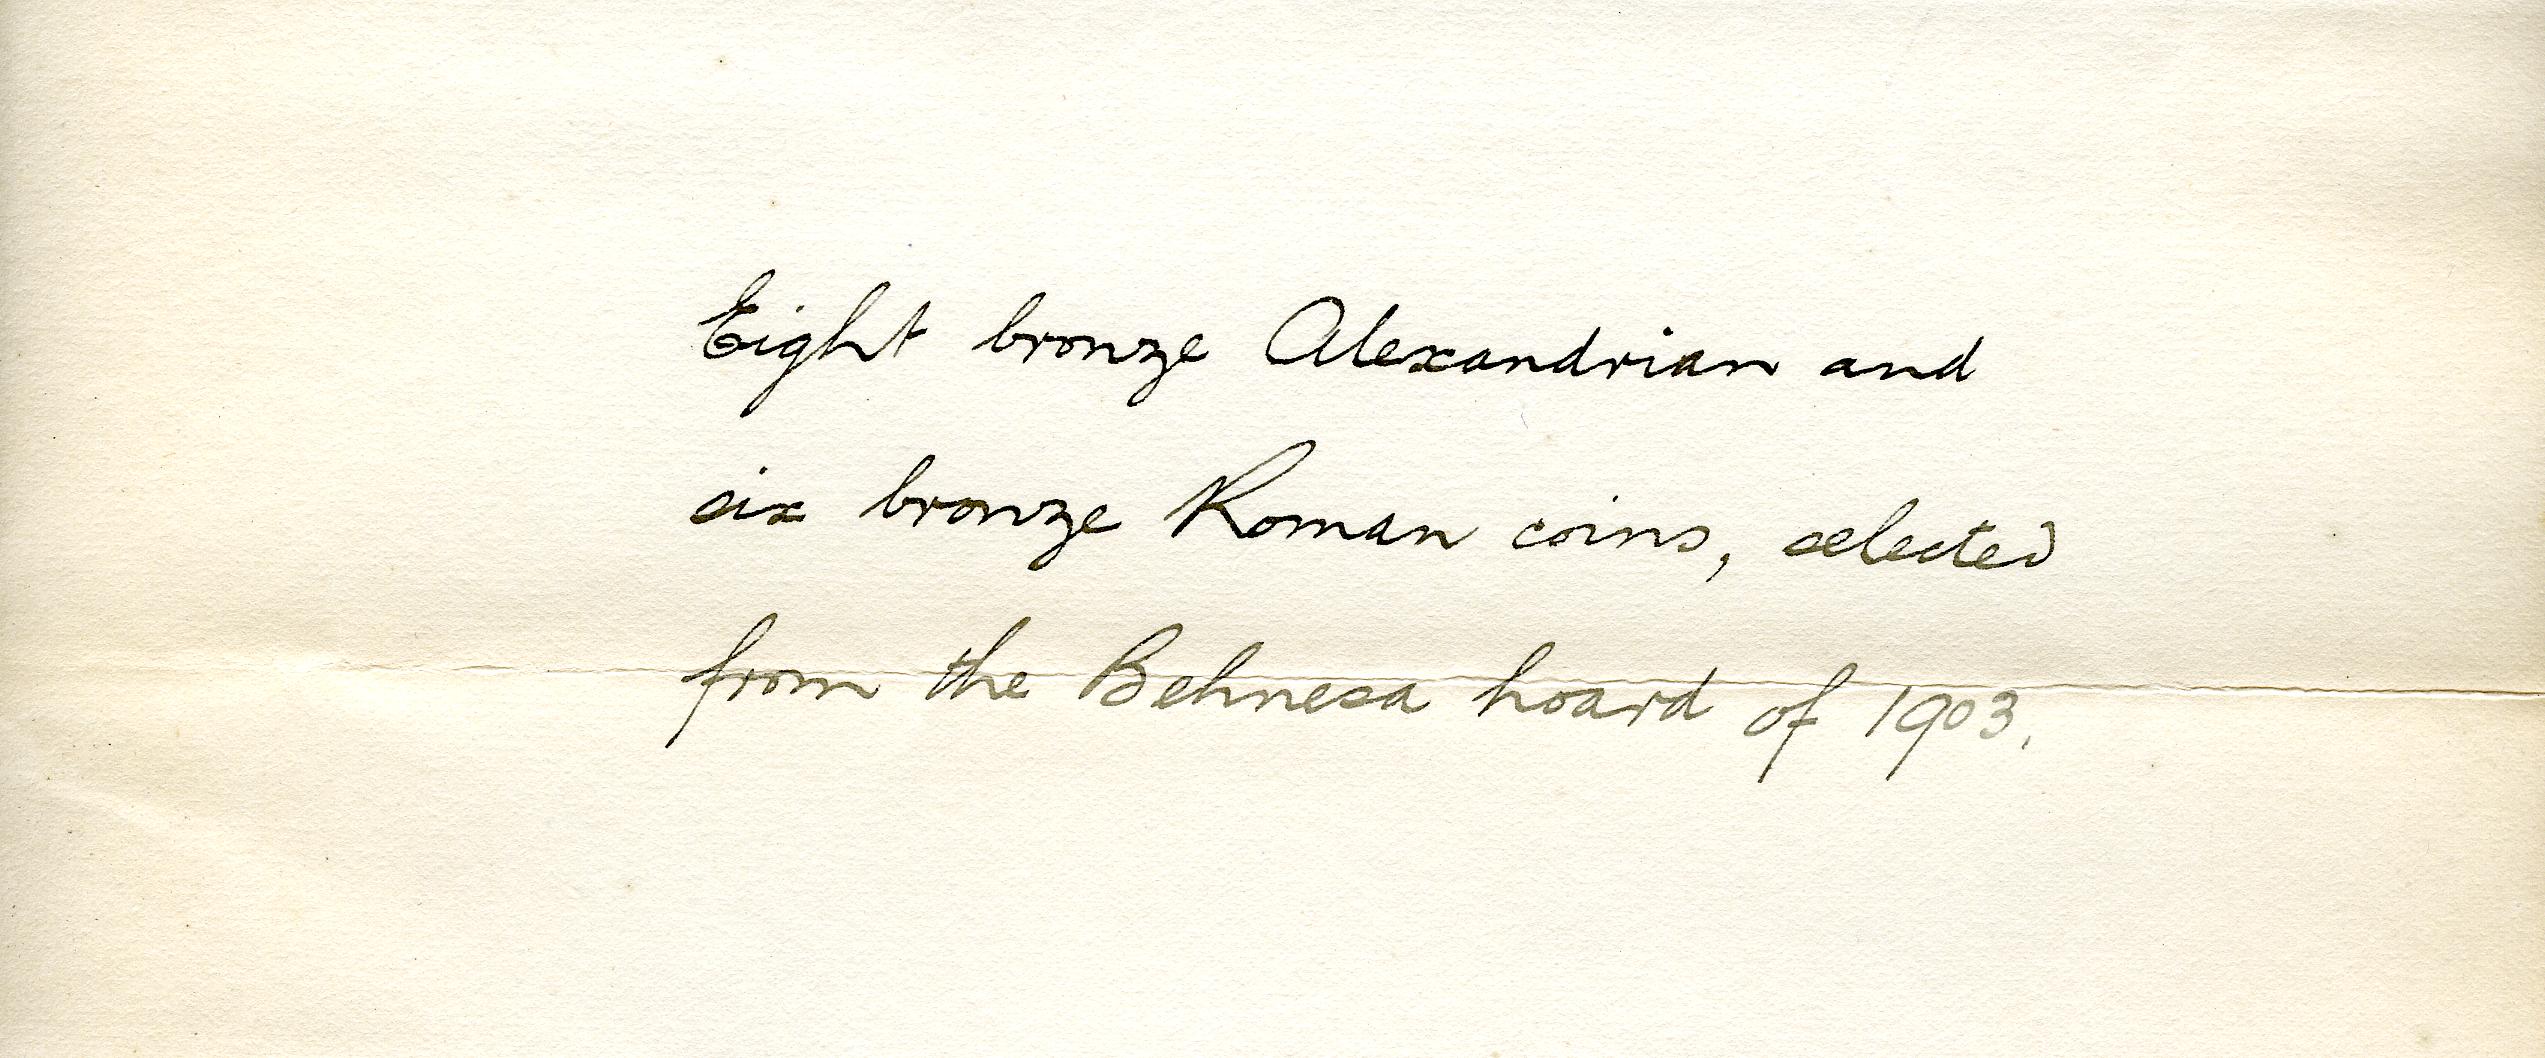 Eight bronze Alexandrian and
six bronze Roman coins, selected
from the Behnesa hoard of 1903.